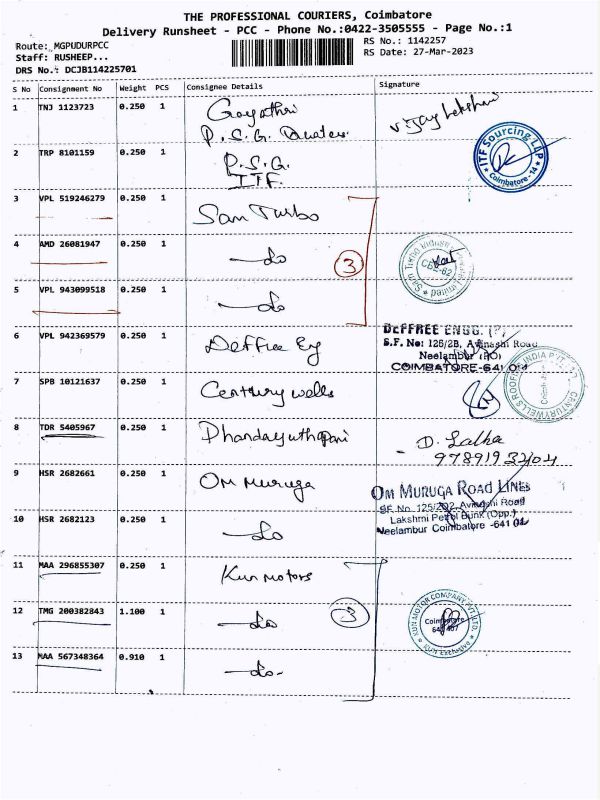 THE PROFESSIONAL COURIERS, Coimbatore
Delivery Runsheet - PCC - Phone No.:0422-3505555 - Page No.:1
Route: MGPUDURPCC
RS No.: 1142257
Staff: RUSHEEP...
RS Date: 27-Mar-2023
DRS No.: DCJB114225701
S No Consignment No Weight PCS Consignee Details Signature
1 TNJ 1123723 0.250 1 Gayathri
P.S.G.
Vijay Lekshmi
ITF Sourcing LLP
Coimbatore - 14
2 TRP 8101159 0.250 1 P.S.G.
ITF.
3 VPL 519246279 0.250 1 Sam Turbo
4 AMD 26081947 0.250 1 -do
3
CBE-62
5 VPL 943099518 0.250 1 -do
6 VPL 942369579 0.250 1 Deffree Eg
DEFFREE ENGG. (P)
S.F. No: 125/2B, Avinashi Road
Neelambur (PO)
COIMBATORE-641 014
7 SPB 10121637 0.250 1 Century wells
CENTURYWELLS ROOFING INDIA PVT. LTD.
8 TDR 5405967 0.250 1 Dhandayuthapani
- D. Latha
9 HSR 2682661 0.250 1 Om Muruga
OM MURUGA ROAD LINES
SF No. 125/2D2, Avinashi Road
Lakshmi Petrol Bunk (Opp.)
Neelambur Coimbatore -641 01
10 HSR 2682123 0.250 1 -do
11 MAA 296855307 0.250 1 Kun Motors
12 TMG 200382843 1.100 1 -do
3
KUN MOTOR COMPANY PVT LTD.
Coimbatore
13 MAA 567348364 0.910 1 -do-